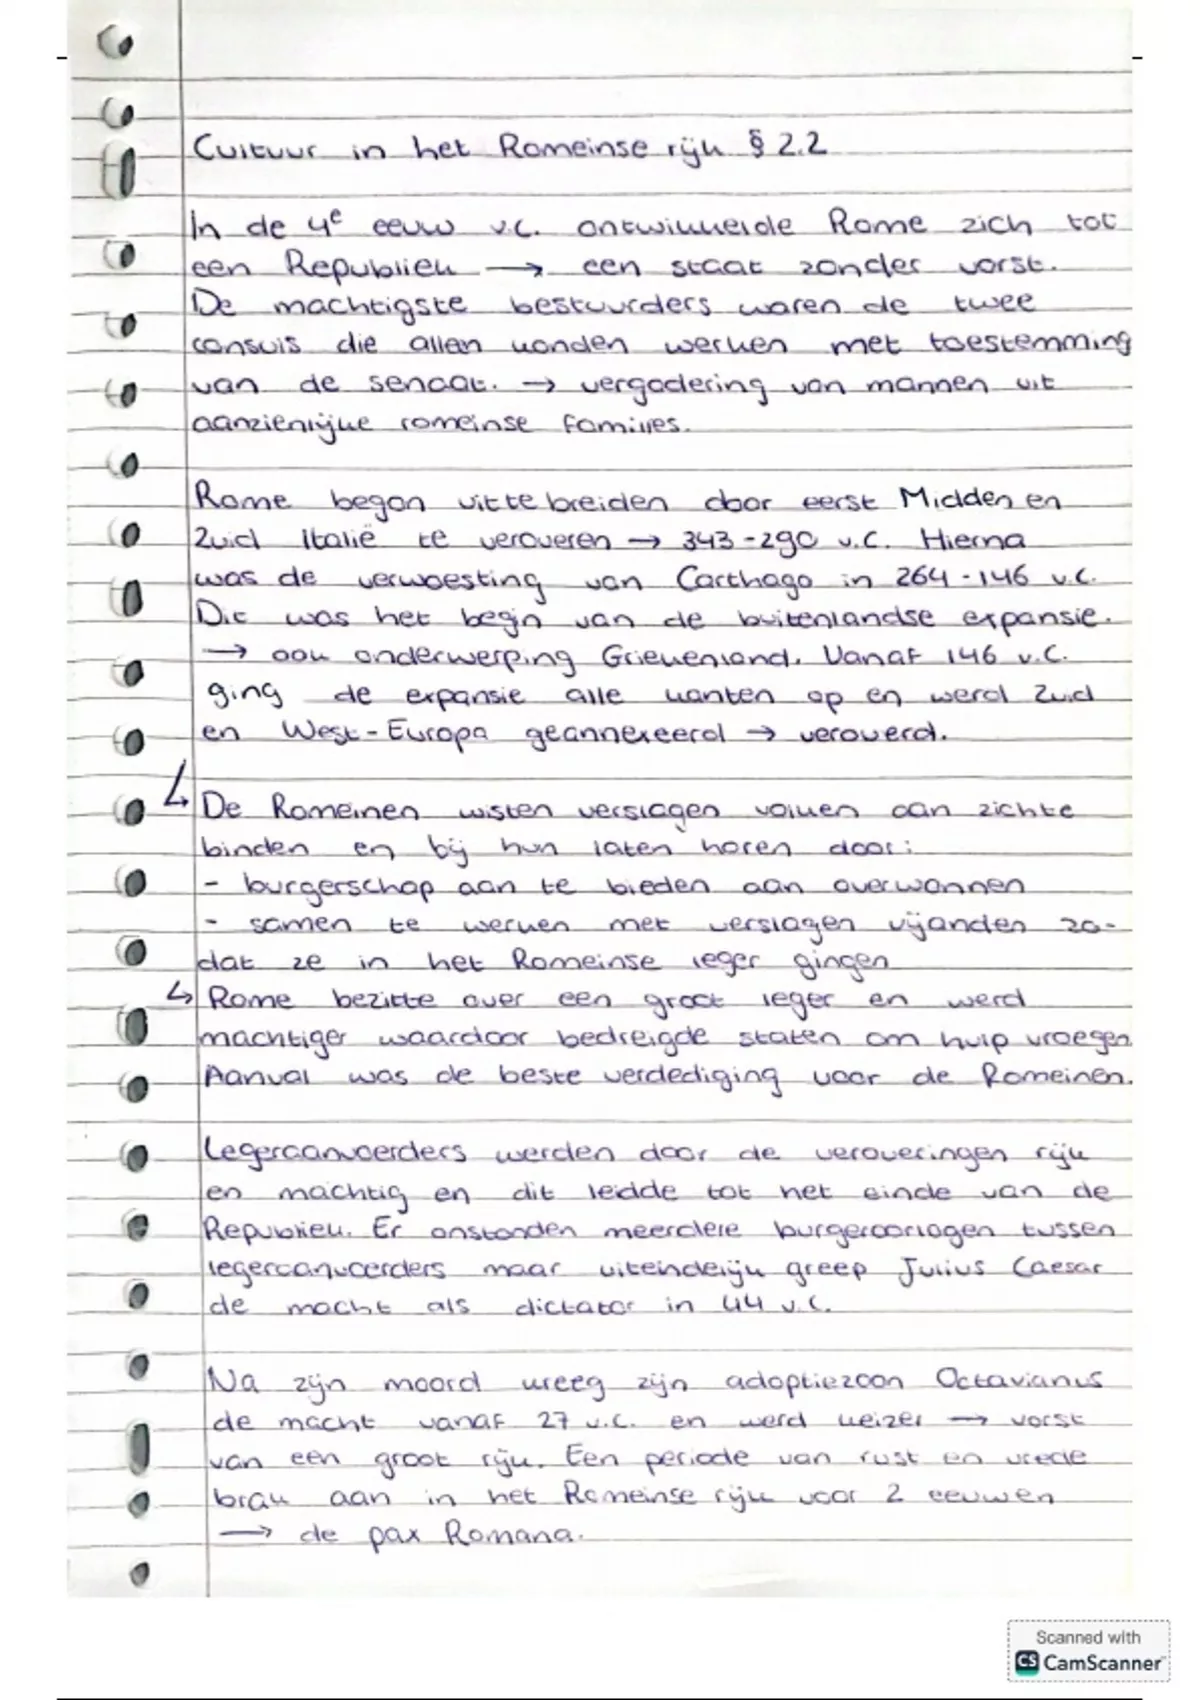 Cultuur in het Romeinse rijk § 2.2
In de 4e eeuw v.C. ontwikkelde Rome zich tot
een Republiek → een staat zonder vorst.
De machtigste bestuurders waren de twee
consuls die alleen konden werken met toestemming
van de senaat. → vergadering van mannen uit
aanzienlijke romeinse families.
Rome began uit te breiden door eerst Midden en
Zuid Italië te veroveren → 343-290 v.C. Hierna
was de verwoesting van Carthago in 264-146 v.C.
Dit was het begin van de buitenlandse expansie.
→ ook onderwerping Griekenland. Vanaf 146 v.C.
ging de expansie alle kanten op en werd Zuid
en West-Europa geannexeerd → veroverd.
↳ De Romeinen wisten verslagen volken aan zich te
binden en bij hun laten horen door:
- burgerschap aan te bieden aan overwonnen
- samen te werken met verslagen vijanden zo-
dat ze in het Romeinse leger gingen
↳ Rome bezitte over een groot leger en werd
machtiger waardoor bedreigde staten om hulp vroegen.
Aanval was de beste verdediging voor de Romeinen.
Legeraanvoerders werden door de veroveringen rijk
en machtig en dit leidde tot het einde van de
Republiek. Er onstonden meerdere burgeroorlogen tussen
legeraanvoerders maar uiteindelijk greep Julius Caesar
de macht als dictator in 44 v.C.
Na zijn moord kreeg zijn adoptiezoon Octavianus
de macht vanaf 27 v.C. en werd keizer → vorst
van een groot rijk. Een periode van rust en vrede
brak aan in het Romeinse rijk voor 2 eeuwen
→ de pax Romana.
Scanned with
CS CamScanner